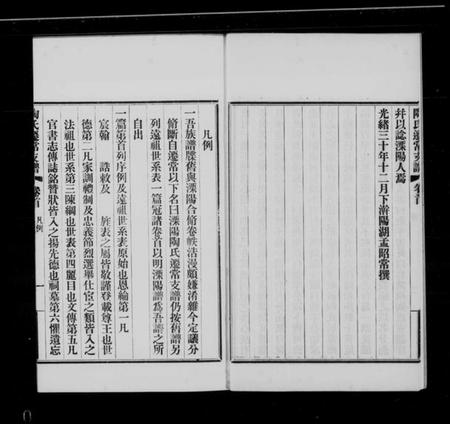 陶氏遷常支譜 卷首
并以諗溧陽人焉
光緒三十年十二月下澣陽湖孟昭常撰
凡例
一吾族譜牒舊與溧陽合脩卷帙浩漫頗嫌淆雜今定議分
脩斷自遷常以下名曰溧陽陶氏遷常支譜仍按舊譜另
列遠祖世系表一篇冠諸卷首以明溧陽譜爲吾譜之所
自出
一篇第首列序例及遠祖世系表原始也恩綸第一凡
宸翰 誥敕及 旌表之屬皆敬謹登載尊王也世
德第二凡家訓禮制及忠義節烈選舉仕宦之類皆入之
法祖也世系第三陳綱也世表第四麗目也文傳第五凡
官書志傳誌銘贊狀皆入之揚先德也祠墓第六懼遺忘
陶氏遷常支譜 卷首 凡例 一